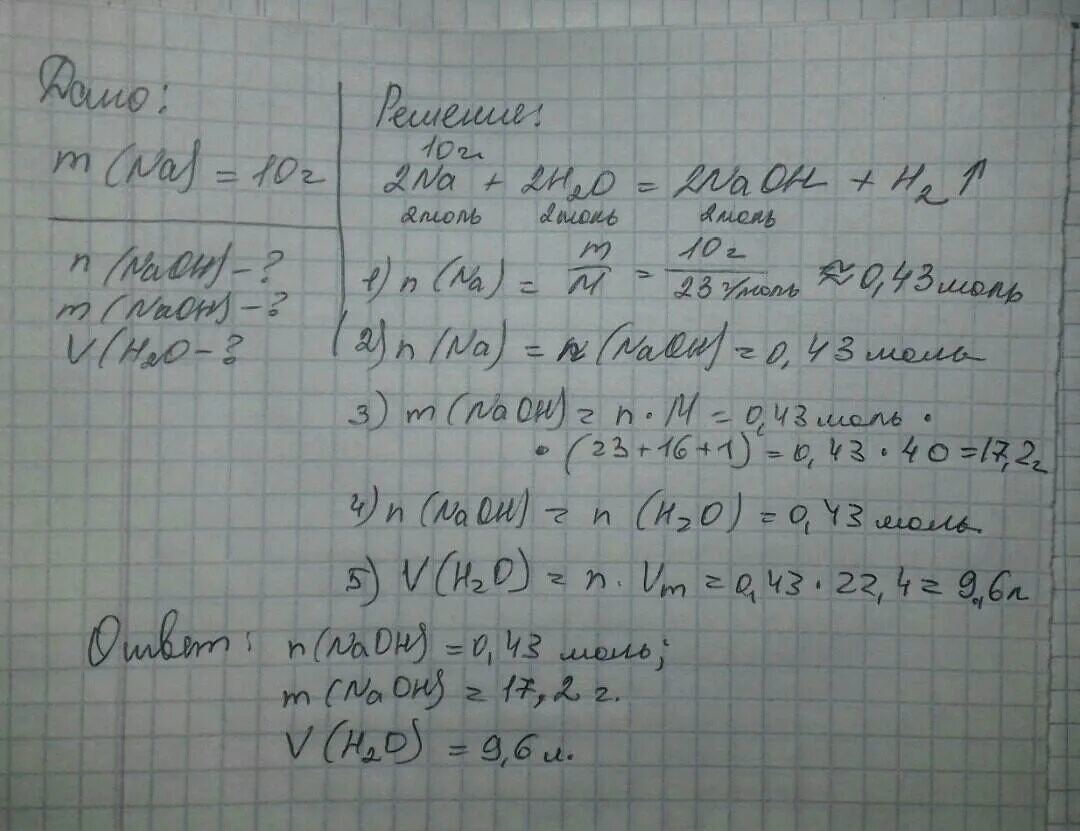 Дано:
m (Na) = 10г
n (NaOH) - ?
m (NaOH) - ?
V (H₂O - ?
Решение:
10г.
2Na + 2H₂O = 2NaOH + H₂ ↑
2моль 2моль 2моль
1) n (Na) = m/M = 10г/23 г/моль ≈ 0,43 моль
2) n (Na) = n (NaOH) = 0,43 моль
3) m (NaOH) = n · M = 0,43 моль ·
· (23 + 16 + 1) = 0,43 · 40 = 17,2г
4) n (NaOH) = n (H₂O) = 0,43 моль.
5) V (H₂O) = n · Vm = 0,43 · 22,4 = 9,6л
Ответ: n (NaOH) = 0,43 моль;
m (NaOH) = 17,2 г.
V (H₂O) = 9,6 л.